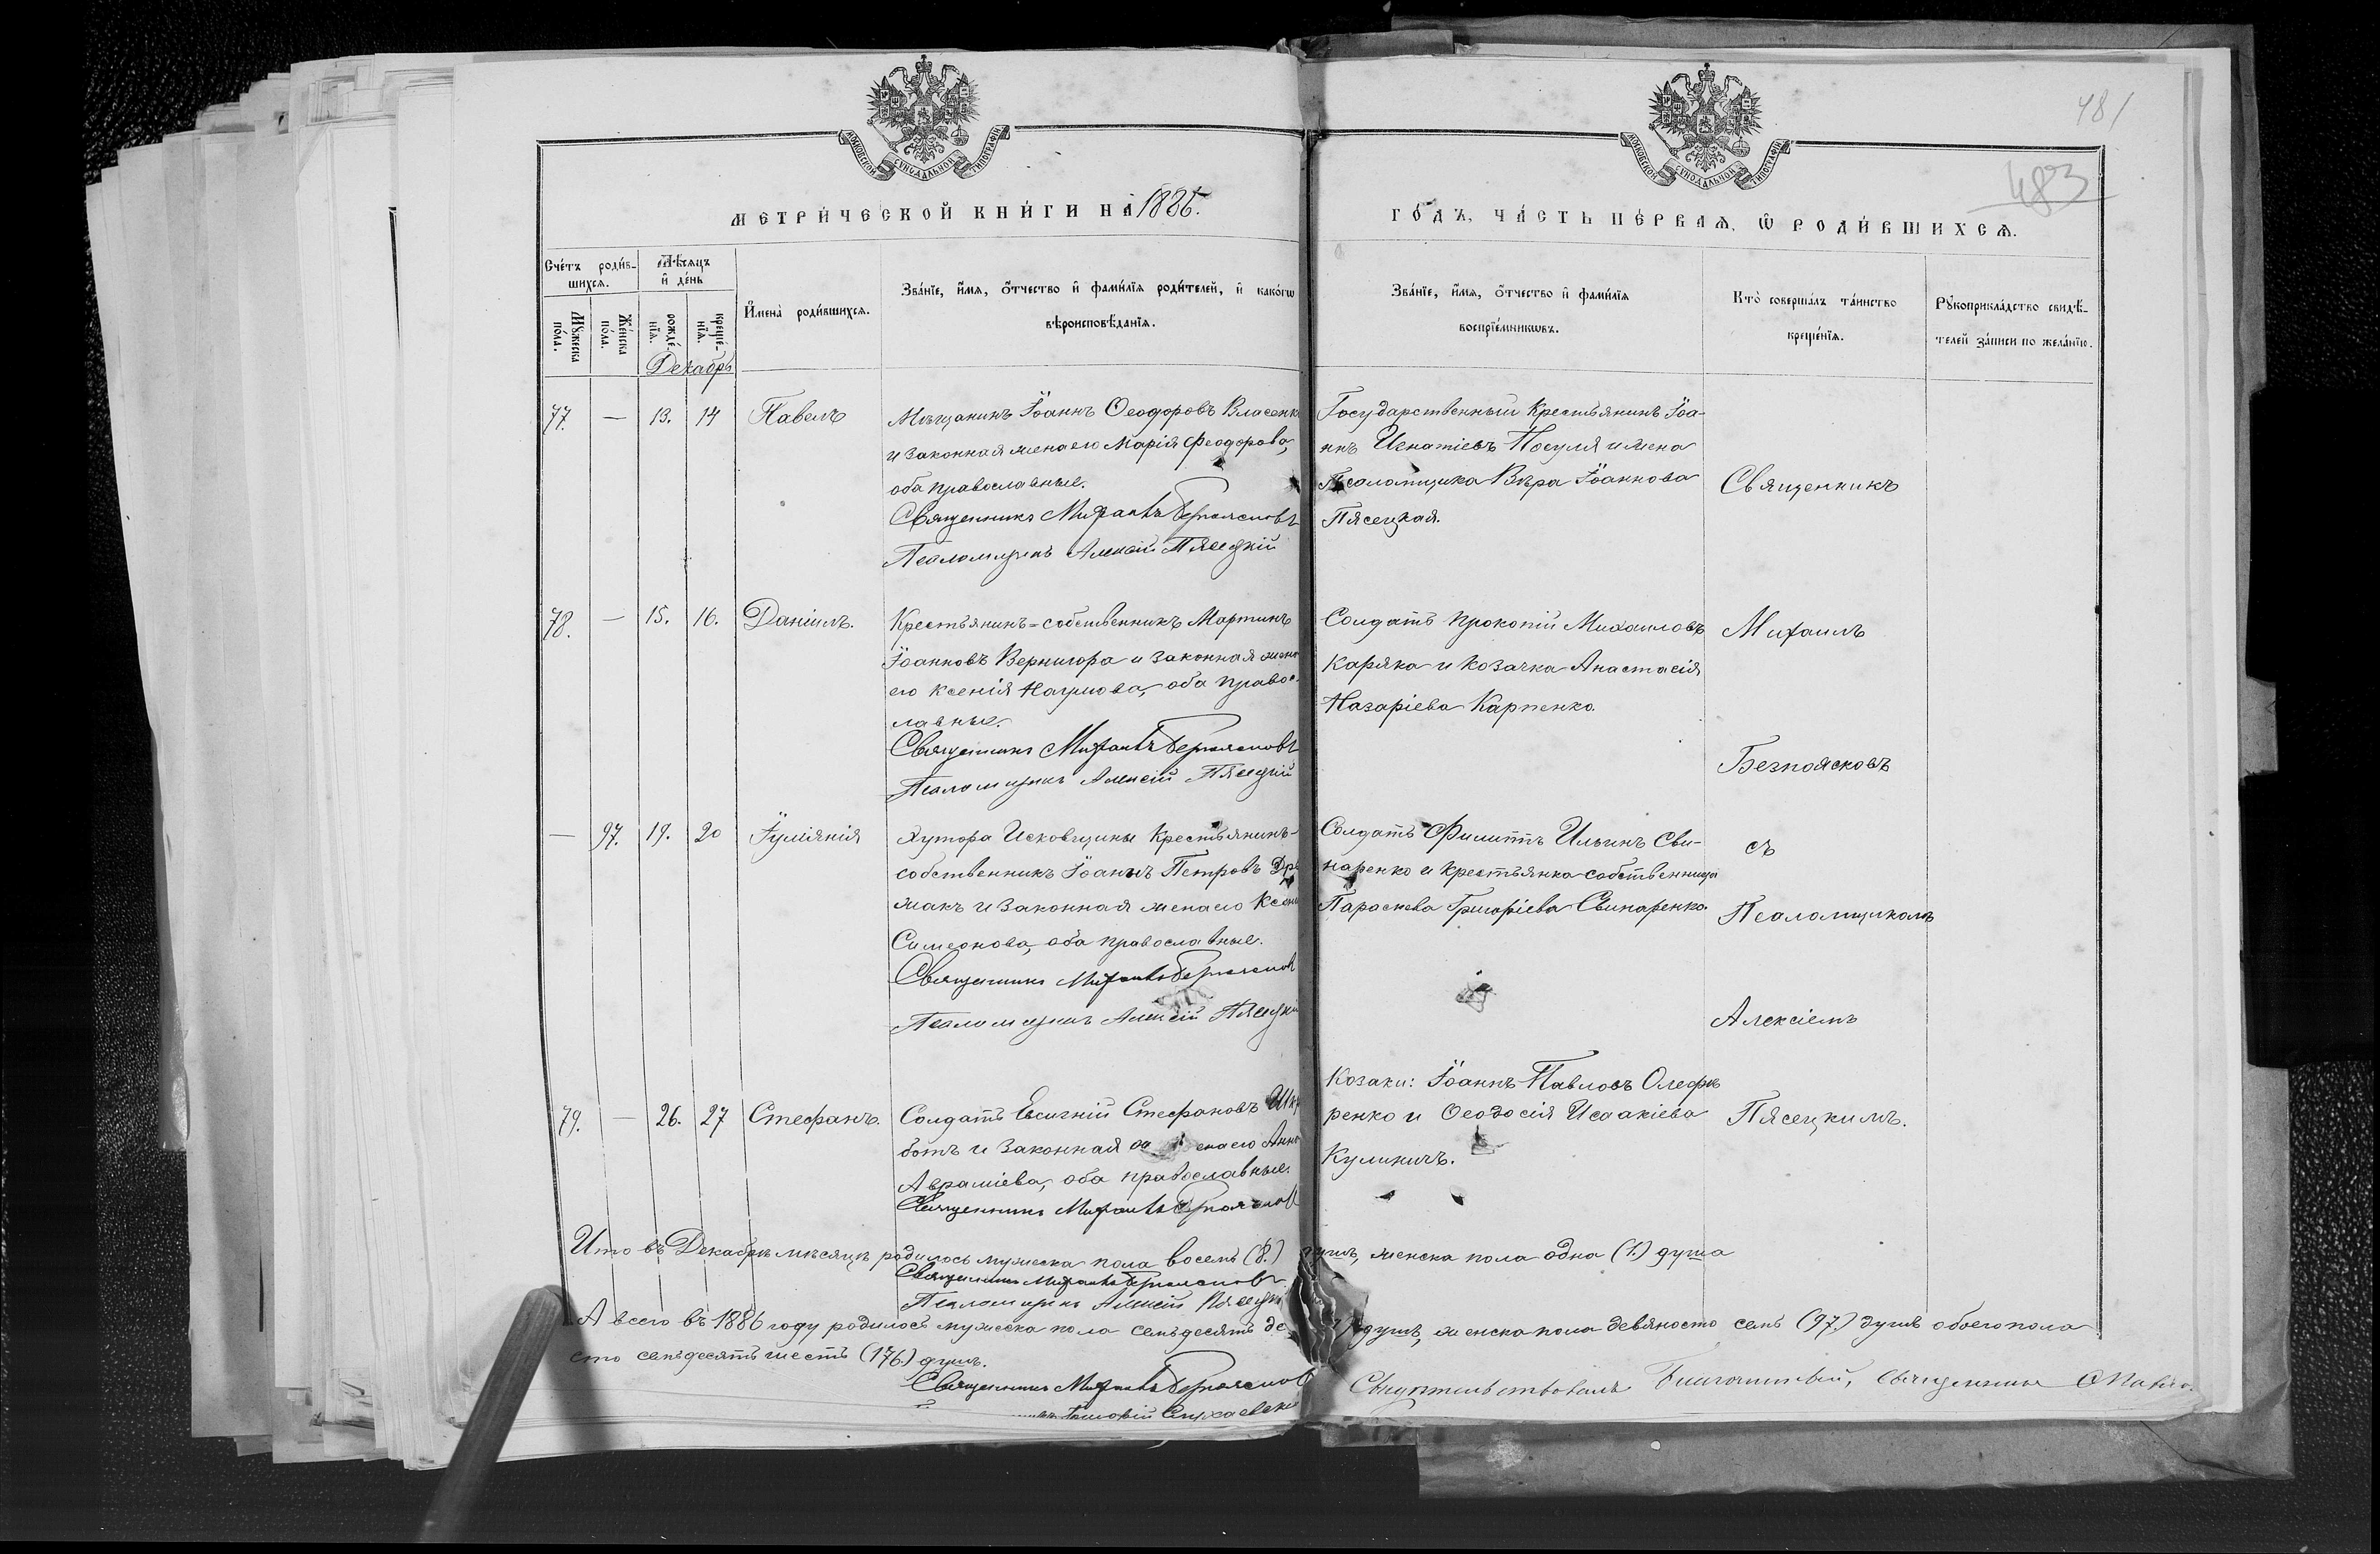 МОСКОВСКОЙ СѴНОДАЛЬНОЙ ТИПОГРАФІИ
МОСКОВСКОЙ СѴНОДАЛЬНОЙ ТИПОГРАФІИ
481
483
МЕТРИ́ЧЕСКОЙ КНИ́ГИ НА 1886.
ГО́ДЪ, ЧА́СТЬ ПЕ́РВАѦ, Ѡ҆ РОДИ́ВШИХСѦ.
Сче́тъ роди́в-
шихсѧ.
Мѣ́сяцъ
и҆ де́нь
Мꙋ́жеска
по́ла.
Же́нска
по́ла.
рожде́-
нїѧ.
креще́-
нїѧ.
Декабрь
И҆мена̀ роди́вшихсѧ.
Зва́нїе, и҆́мѧ, ѻ҆́тчество и҆ фами́лїѧ роди́телей, и҆ како́гѡ
вѣроисповѣ́данїѧ.
Зва́нїе, и҆́мѧ, ѻ҆́тчество и҆ фами́лїѧ
воспрїе́мникѡвъ.
Кто̀ соверша́лъ та́инство
креще́нїѧ.
Рꙋкоприкла́дство свидѣ́-
телей за́писи по жела́нїю.
77. — 13. 14 Павелъ
Мѣщанинъ Іоаннъ Ѳеодоровъ Власенко
и законная жена его Марія Феодорова,
оба православные.
Священникъ Михаилъ Безпоясковъ
Псаломщикъ Алексій Пясецкій
Государственный крестьянинъ Іоа-
ннъ Игнатіевъ Посуля и жена
Псаломщика Вѣра Іоаннова
Пясецкая.
Священникъ
78. — 15. 16. Даніилъ.
Крестьянинъ-собственникъ Мартинъ
Іоанновъ Вернигора и законная жена
его Ксенія Наумова, оба право-
славные.
Священникъ Михаилъ Безпоясковъ
Псаломщикъ Алексій Пясецкій
Солдатъ Прокопій Михаиловъ
Каряка и козачка Анастасія
Назаріева Карпенко.
Михаилъ
Безпоясковъ
— 97. 19. 20 Іуліянія
Хутора Исковщины крестьянинъ-
собственникъ Іоаннъ Петровъ
и законная жена его
Симеонова, оба православные.
Священникъ Михаилъ Безпоясковъ
Псаломщикъ Алексій Пясецкій
Солдатъ Филиппъ Ильинъ Сви-
наренко и крестьянка-собственница
Параскева Григоріева Свинаренко.
съ
Псаломщикомъ
Алексіемъ
79. — 26. 27 Стефанъ.
Солдатъ Евсигній Стефановъ
ботъ и законная жена его Анна
Авраміева, оба православные.
Священникъ Михаилъ Безпоясковъ
Козаки: Іоаннъ Павловъ Олефи-
ренко и Ѳеодосія Исаакіева
Куликичъ.
Пясецкимъ.
Итого въ Декабрѣ мѣсяцѣ родилось мужеска пола восемь (8.) душъ, женска пола одна (1.) душа
Священникъ Михаилъ Безпоясковъ
Псаломщикъ Алексій Пясецкій
А всего въ 1886 году родилось мужеска пола семьдесятъ де душъ, женска пола девяносто семь (97.) душъ обоего пола
сто семьдесятъ шесть (176.) душъ.
Священникъ Михаилъ Безпоясковъ
Свидѣтельствовалъ Благочинный, священникъ